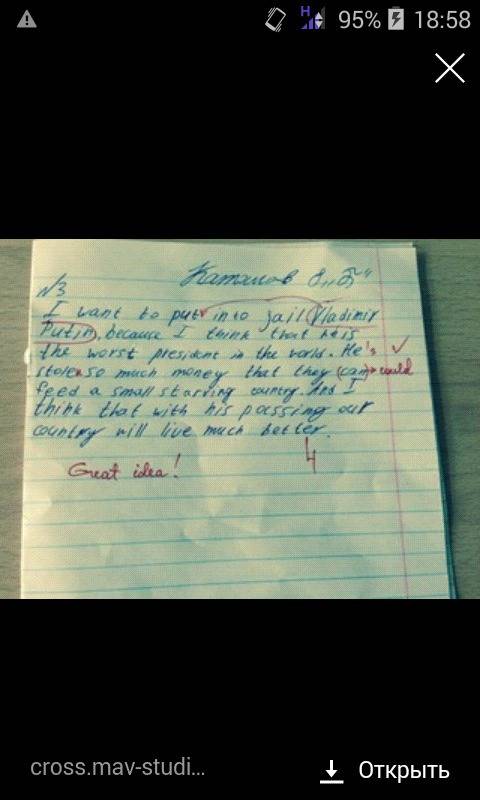 H 95% 18:58
Каталов 8 "Б"
№3
I want to put into jail Vladimir
Putin, because I think that he is
the worst president in the world. He's
stolen so much money that they (can) could
feed a small starving country. And I
think that with his passing our
country will live much better.
4
Great idea!
cross.mav-studi... Открыть